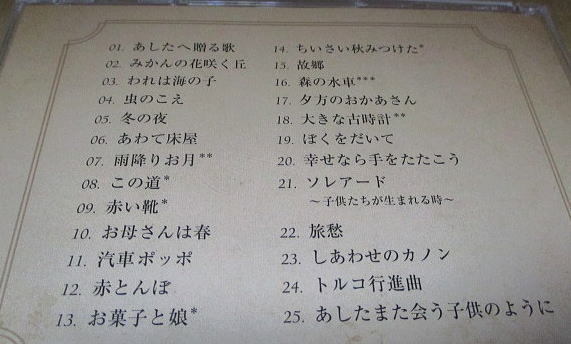 01. あしたへ贈る歌
02. みかんの花咲く丘
03. われは海の子
04. 虫のこえ
05. 冬の夜
06. あわて床屋
07. 雨降りお月**
08. この道*
09. 赤い靴*
10. お母さんは春
11. 汽車ポッポ
12. 赤とんぼ
13. お菓子と娘*
14. ちいさい秋みつけた*
15. 故郷
16. 森の水車***
17. 夕方のおかあさん
18. 大きな古時計**
19. ぼくをだいて
20. 幸せなら手をたたこう
21. ソレアード
〜子供たちが生まれる時〜
22. 旅愁
23. しあわせのカノン
24. トルコ行進曲
25. あしたまた会う子供のように